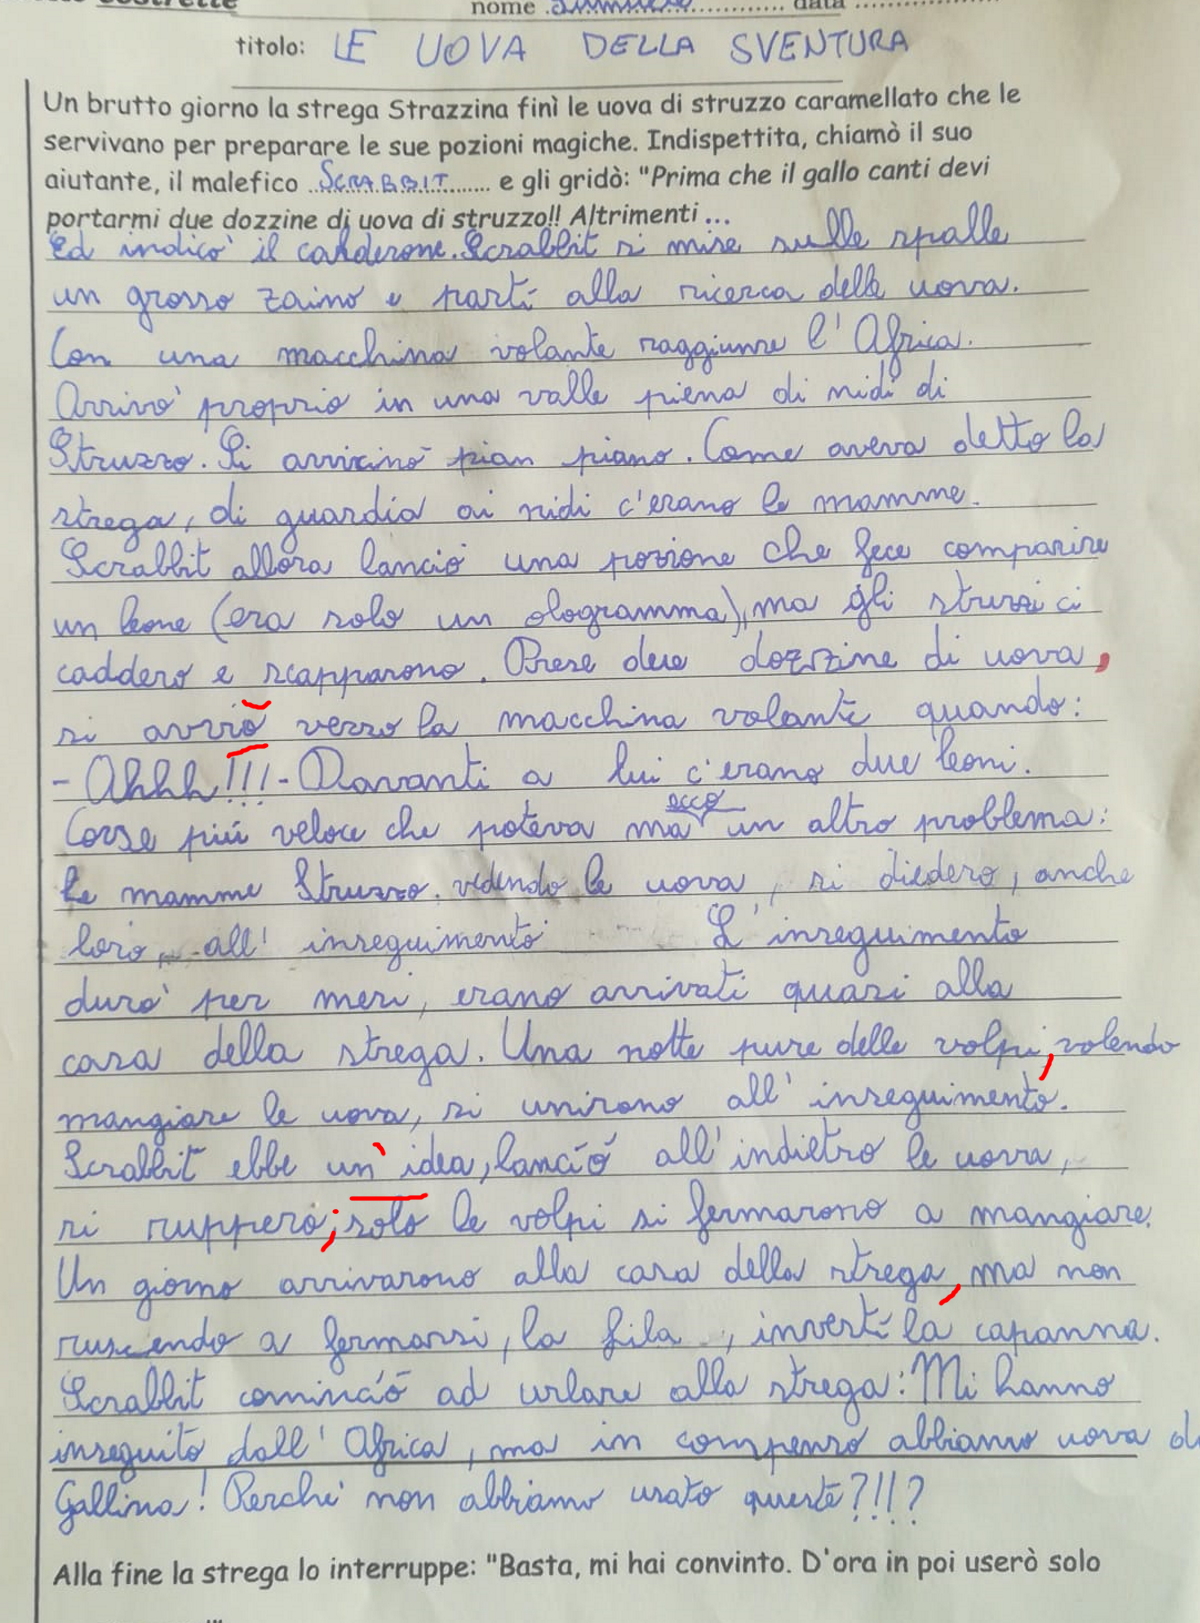 nome
titolo: LE UOVA DELLA SVENTURA
Un brutto giorno la strega Strazzina finì le uova di struzzo caramellato che le
servivano per preparare le sue pozioni magiche. Indispettita, chiamò il suo
aiutante, il malefico SCRABBIT e gli gridò: "Prima che il gallo canti devi
portarmi due dozzine di uova di struzzo!! Altrimenti ...
Ed indicò il calderone. Scrabbit si mise sulle spalle
un grosso zaino e partì alla ricerca delle uova.
Con una macchina volante raggiunse l'Africa.
Arrivò proprio in una valle piena di nidi di
Struzzo. Si avvicinò pian piano. Come aveva detto la
strega, di guardia ai nidi c'erano le mamme.
Scrabbit allora lanciò una pozione che fece comparire
un leone (era solo un ologramma), ma gli struzzi ci
caddero e scapparono. Prese due dozzine di uova,
si avviò verso la macchina volante quando:
- Ahhh!!! - Davanti a lui c'erano due leoni.
Corse più veloce che poteva ma ecco un altro problema:
le mamme Struzzo, vedendo le uova, si diedero, anche
loro, all'inseguimento L'inseguimento
durò per mesi, erano arrivati quasi alla
casa della strega. Una notte pure delle volpi, volendo
mangiare le uova, si unirono all'inseguimento.
Scrabbit ebbe un'idea, lanciò all'indietro le uova,
si ruppero; solo le volpi si fermarono a mangiare.
Un giorno arrivarono alla casa della strega, ma non
ruscendo a fermarsi, la fila, investì la capanna.
Scrabbit cominciò ad urlare alla strega: Mi hanno
inseguito dall'Africa, ma in compenso abbiamo uova di
Gallina! Perché non abbiamo usato queste?!!?
Alla fine la strega lo interruppe: "Basta, mi hai convinto. D'ora in poi userò solo